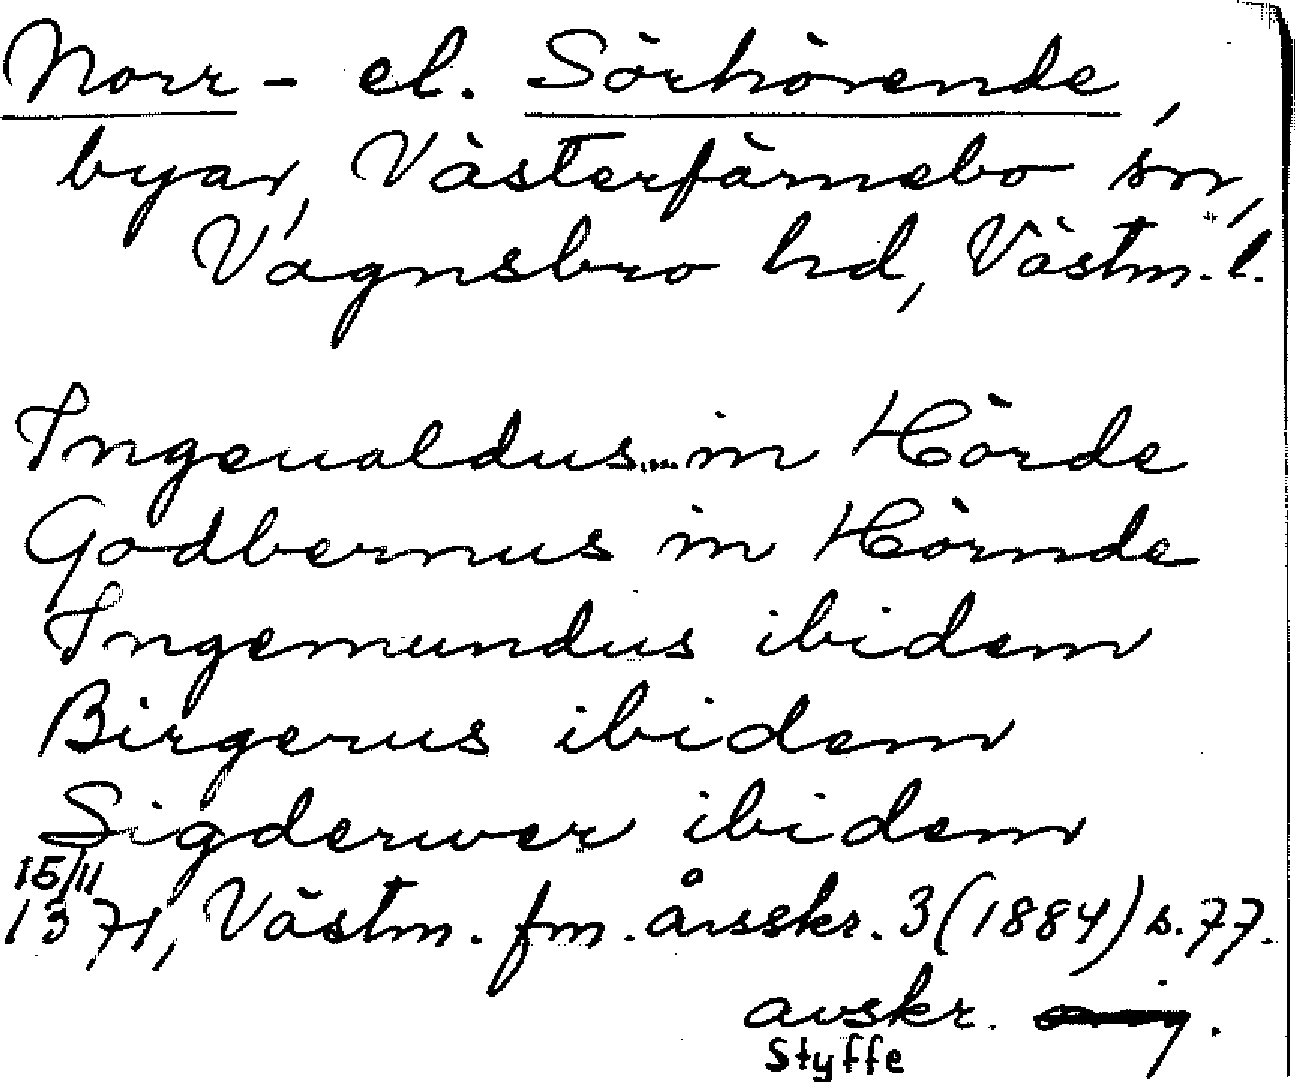 Norr- el. Sörhörende,
byar, Västerfärnebo sn,
Vagnsbro hd, Västm. l.
Ingeualdus... in Hörde
Godbernus in Hörnde
Ingemundus ibidem
Birgerus ibidem
Sigderwer ibidem
15/11
1371, Västm. fm. årsskr. 3 (1884) s. 77.
avskr.
Styffe